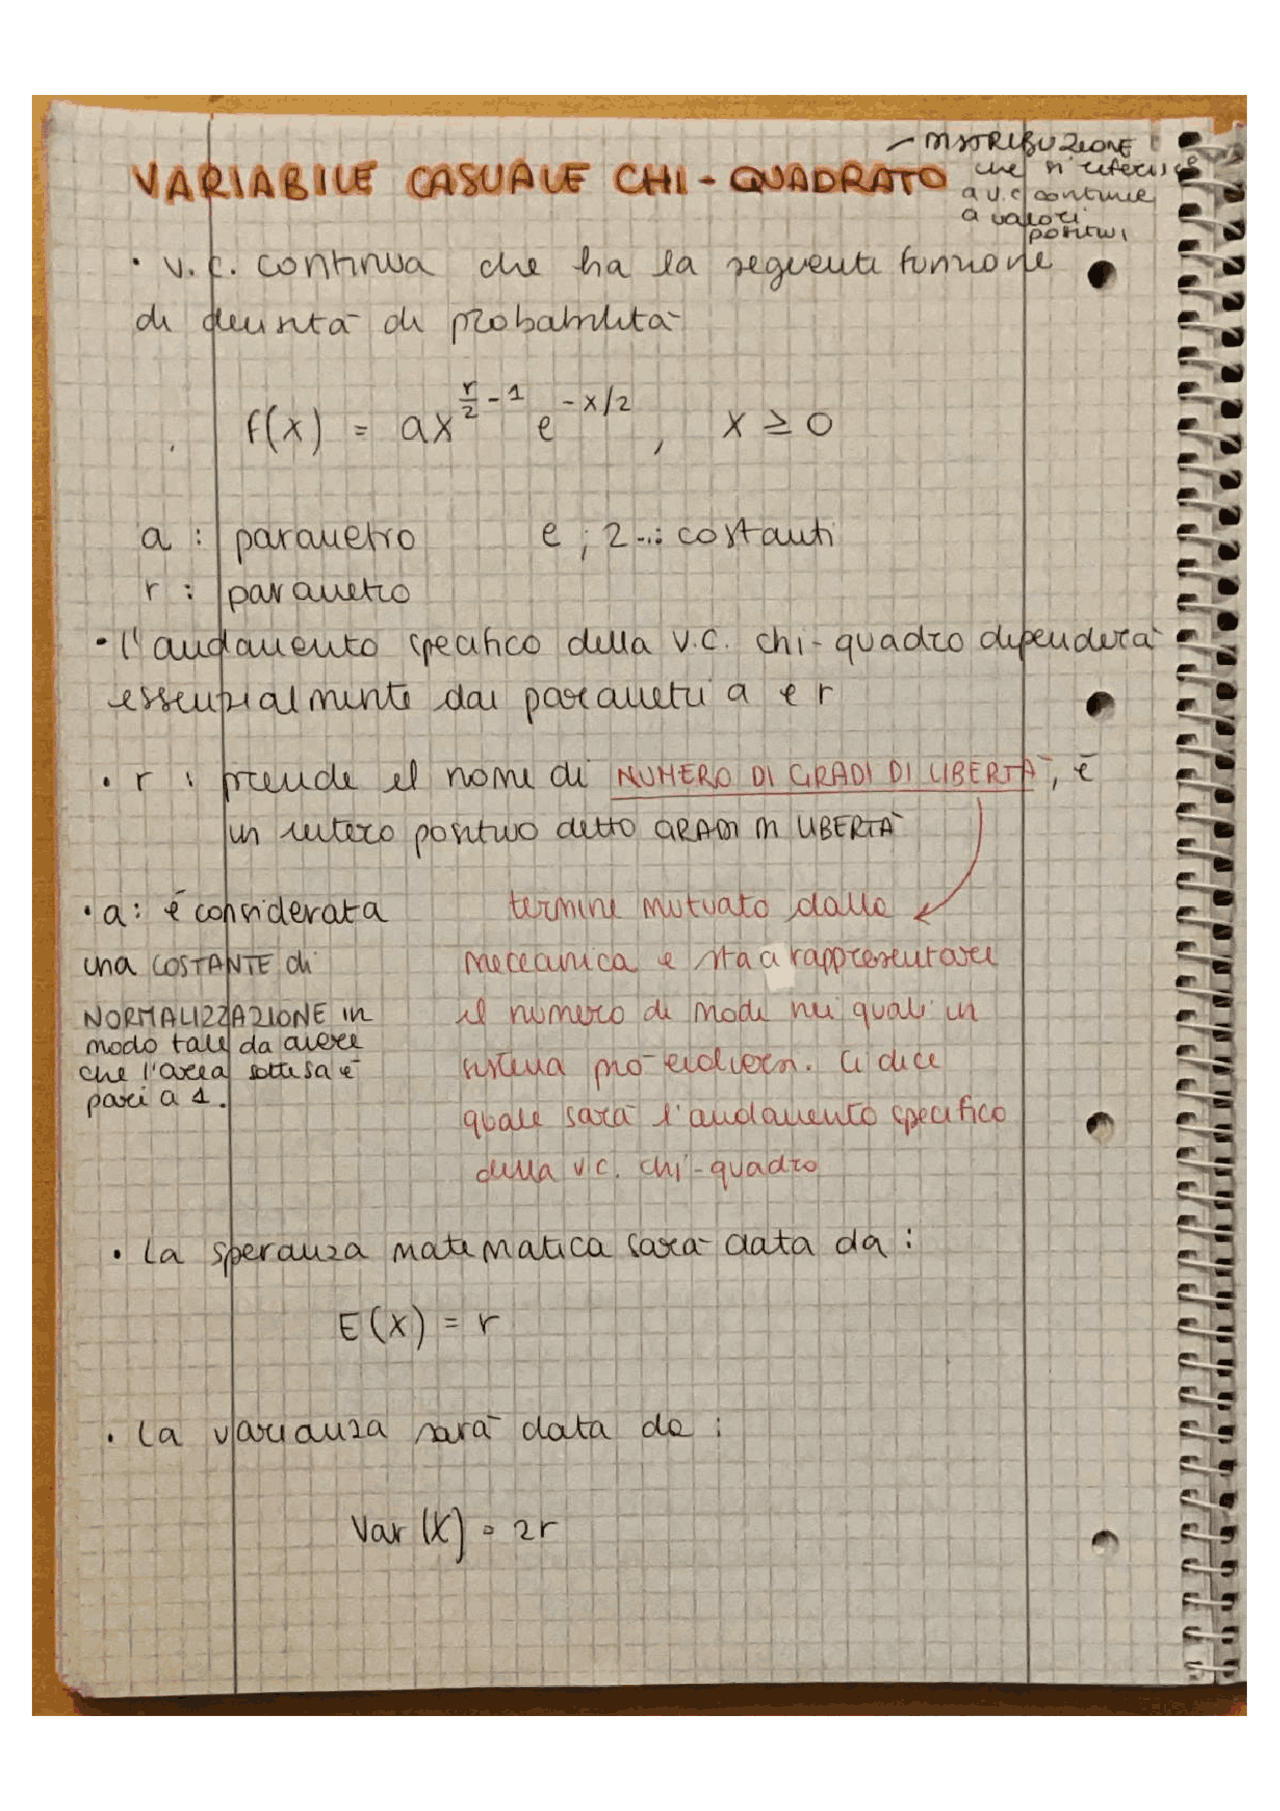 VARIABILE CASUALE CHI-QUADRATO
- DISTRIBUZIONE
che si riferisce
a v.c. continue
a valori
positivi
• v.c. continua che ha la seguente funzione
di densità di probabilità
f(x) = ax^(r/2 - 1) e^(-x/2), x ≥ 0
a : parametro e ; 2...: costanti
r : parametro
• l'andamento specifico della v.c. chi-quadro dipenderà
essenzialmente dai parametri a e r
• r : prende il nome di NUMERO DI GRADI DI LIBERTÀ, è
un intero positivo detto GRADI DI LIBERTÀ
• a: è considerata
una COSTANTE di
NORMALIZZAZIONE in
modo tale da avere
che l'area sottesa è
pari a 1.
termine mutuato dalla
meccanica e sta a rappresentare
il numero di modi nei quali un
sistema può evolversi. Ci dice
quale sarà l'andamento specifico
della v.c. chi-quadro
• La speranza matematica sarà data da :
E(X) = r
• La varianza sarà data da :
Var(X) = 2r